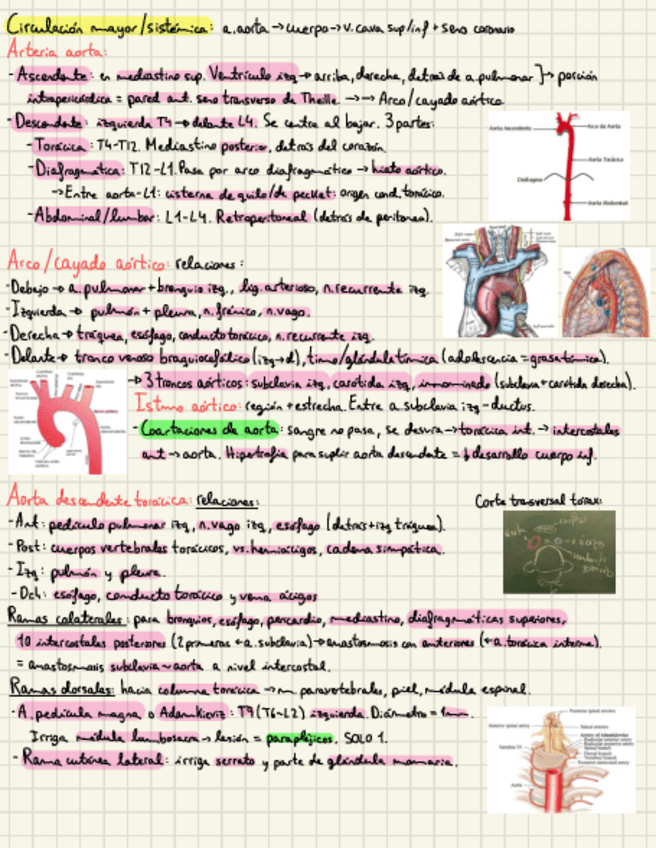 Circulación mayor/sistémica: a. aorta → cuerpo → v. cava sup/inf + seno coronario
Arteria aorta:
- Ascendente: en mediastino sup. Ventrículo izq → arriba, derecha, detrás de a. pulmonar }→ porción
intrapericárdica = pared ant. seno transverso de Theille →→ Arco/cayado aórtico
- Descendente: izquierda T4 → delante L4. Se centra al bajar. 3 partes:
- Torácica: T4-T12. Mediastino posterior, detrás del corazón.
- Diafragmática: T12-L1. Pasa por arco diafragmático → hiato aórtico.
→ Entre aorta-L1: cisterna de quilo/de pecket: origen cond. torácico.
- Abdominal/lumbar: L1-L4. Retroperitoneal (detrás de peritoneo).
Aorta Ascendente
Arco da Aorta
Aorta Torácica
Diafragma
Aorta Abdominal
Arco/cayado aórtico: relaciones:
- Debajo → a. pulmonar + bronquio izq, lig. arterioso, n. recurrente izq.
- Izquierda → pulmón + pleura, n. frénico, n. vago.
- Derecha → tráquea, esófago, conducto torácico, n. recurrente izq.
- Delante → tronco venoso braquiocefálico (izq→d), timo/glándula tímica (adolescencia = grasa tímica).
→ 3 troncos aórticos: subclavia izq, carótida izq, innominado (subclavia + carótida derecha).
Istmo aórtico: región + estrecha. Entre a. subclavia izq - ductus.
- Coartaciones de aorta: sangre no pasa, se desvía → torácica int. → intercostales
ant → aorta. Hipertrofia para suplir aorta descendente = ↓ desarrollo cuerpo inf.
Aorta descendente torácica: relaciones:
Corte transversal tórax:
- Ant: pedículo pulmonar izq, n. vago izq, esófago (detrás + izq tráquea).
- Post: cuerpos vertebrales torácicos, vs. hemiácigos, cadena simpática.
- Izq: pulmón y pleura.
- Dch: esófago, conducto torácico y vena ácigos
Ramas colaterales: para bronquios, esófago, pericardio, mediastino, diafragmáticas superiores,
10 intercostales posteriores (2 primeras ← a. subclavia) → anastomosis con anteriores (← a. torácica interna).
= anastomosis subclavia ~ aorta a nivel intercostal.
Ramas dorsales: hacia columna torácica → m paravertebrales, piel, médula espinal.
- A. pedícula magna o Adamkieviz: T9 (T6-L2) izquierda. Diámetro = 1mm.
Irriga médula lumbosacra → lesión = parapléjicos. SOLO 1.
- Rama cutánea lateral: irriga serrato y parte de glándula mamaria.
Posterior spinal arteries
Anterior spinal artery
Artery of Adamkiewicz
Dorsal branch
Aorta